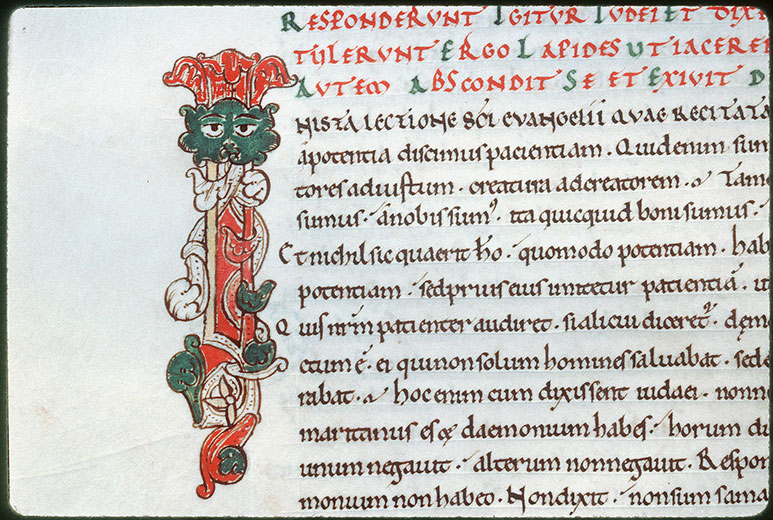 RESPONDERUNT IGITUR IUDEI ET DIXE
TULERUNT ERGO LAPIDES UT IACERE
AUTEM ABSCONDIT SE ET EXIVIT D
N ISTA LECTIONE SCI EVANGELII QUAE RECITATA
a potentia discimus pacientiam. Quid enim sum
tores ad iustum. creatura ad creatorem. Tam
sumus. a nobis sumus. ita quicquid boni sumus.
Et nichil sic quaerit ho. quomodo potentiam. hab
potentiam. sed prius eius imitetur patientiā. ut
Quis nrm patienter audiret. si alicui diceret. dem
ctum ē. ei qui non solum homines salvabat. sed e
rabat. hoc enim cum dixissent iudaei. nonne
maritanus es & daemonium habes. horum du
unum negavit. alterum non negavit. Respon
monium non habeo. Non dixit. non sum sama